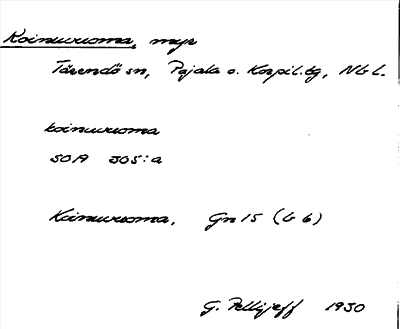 Koinuvuoma, myr
Tärendö sn, Pajala o. Korpil. tg, Nb L.
koinuvuoma
SOA 505:a
Koinuvuoma, Gn 15 (b 6)
G. Pellijeff 1930